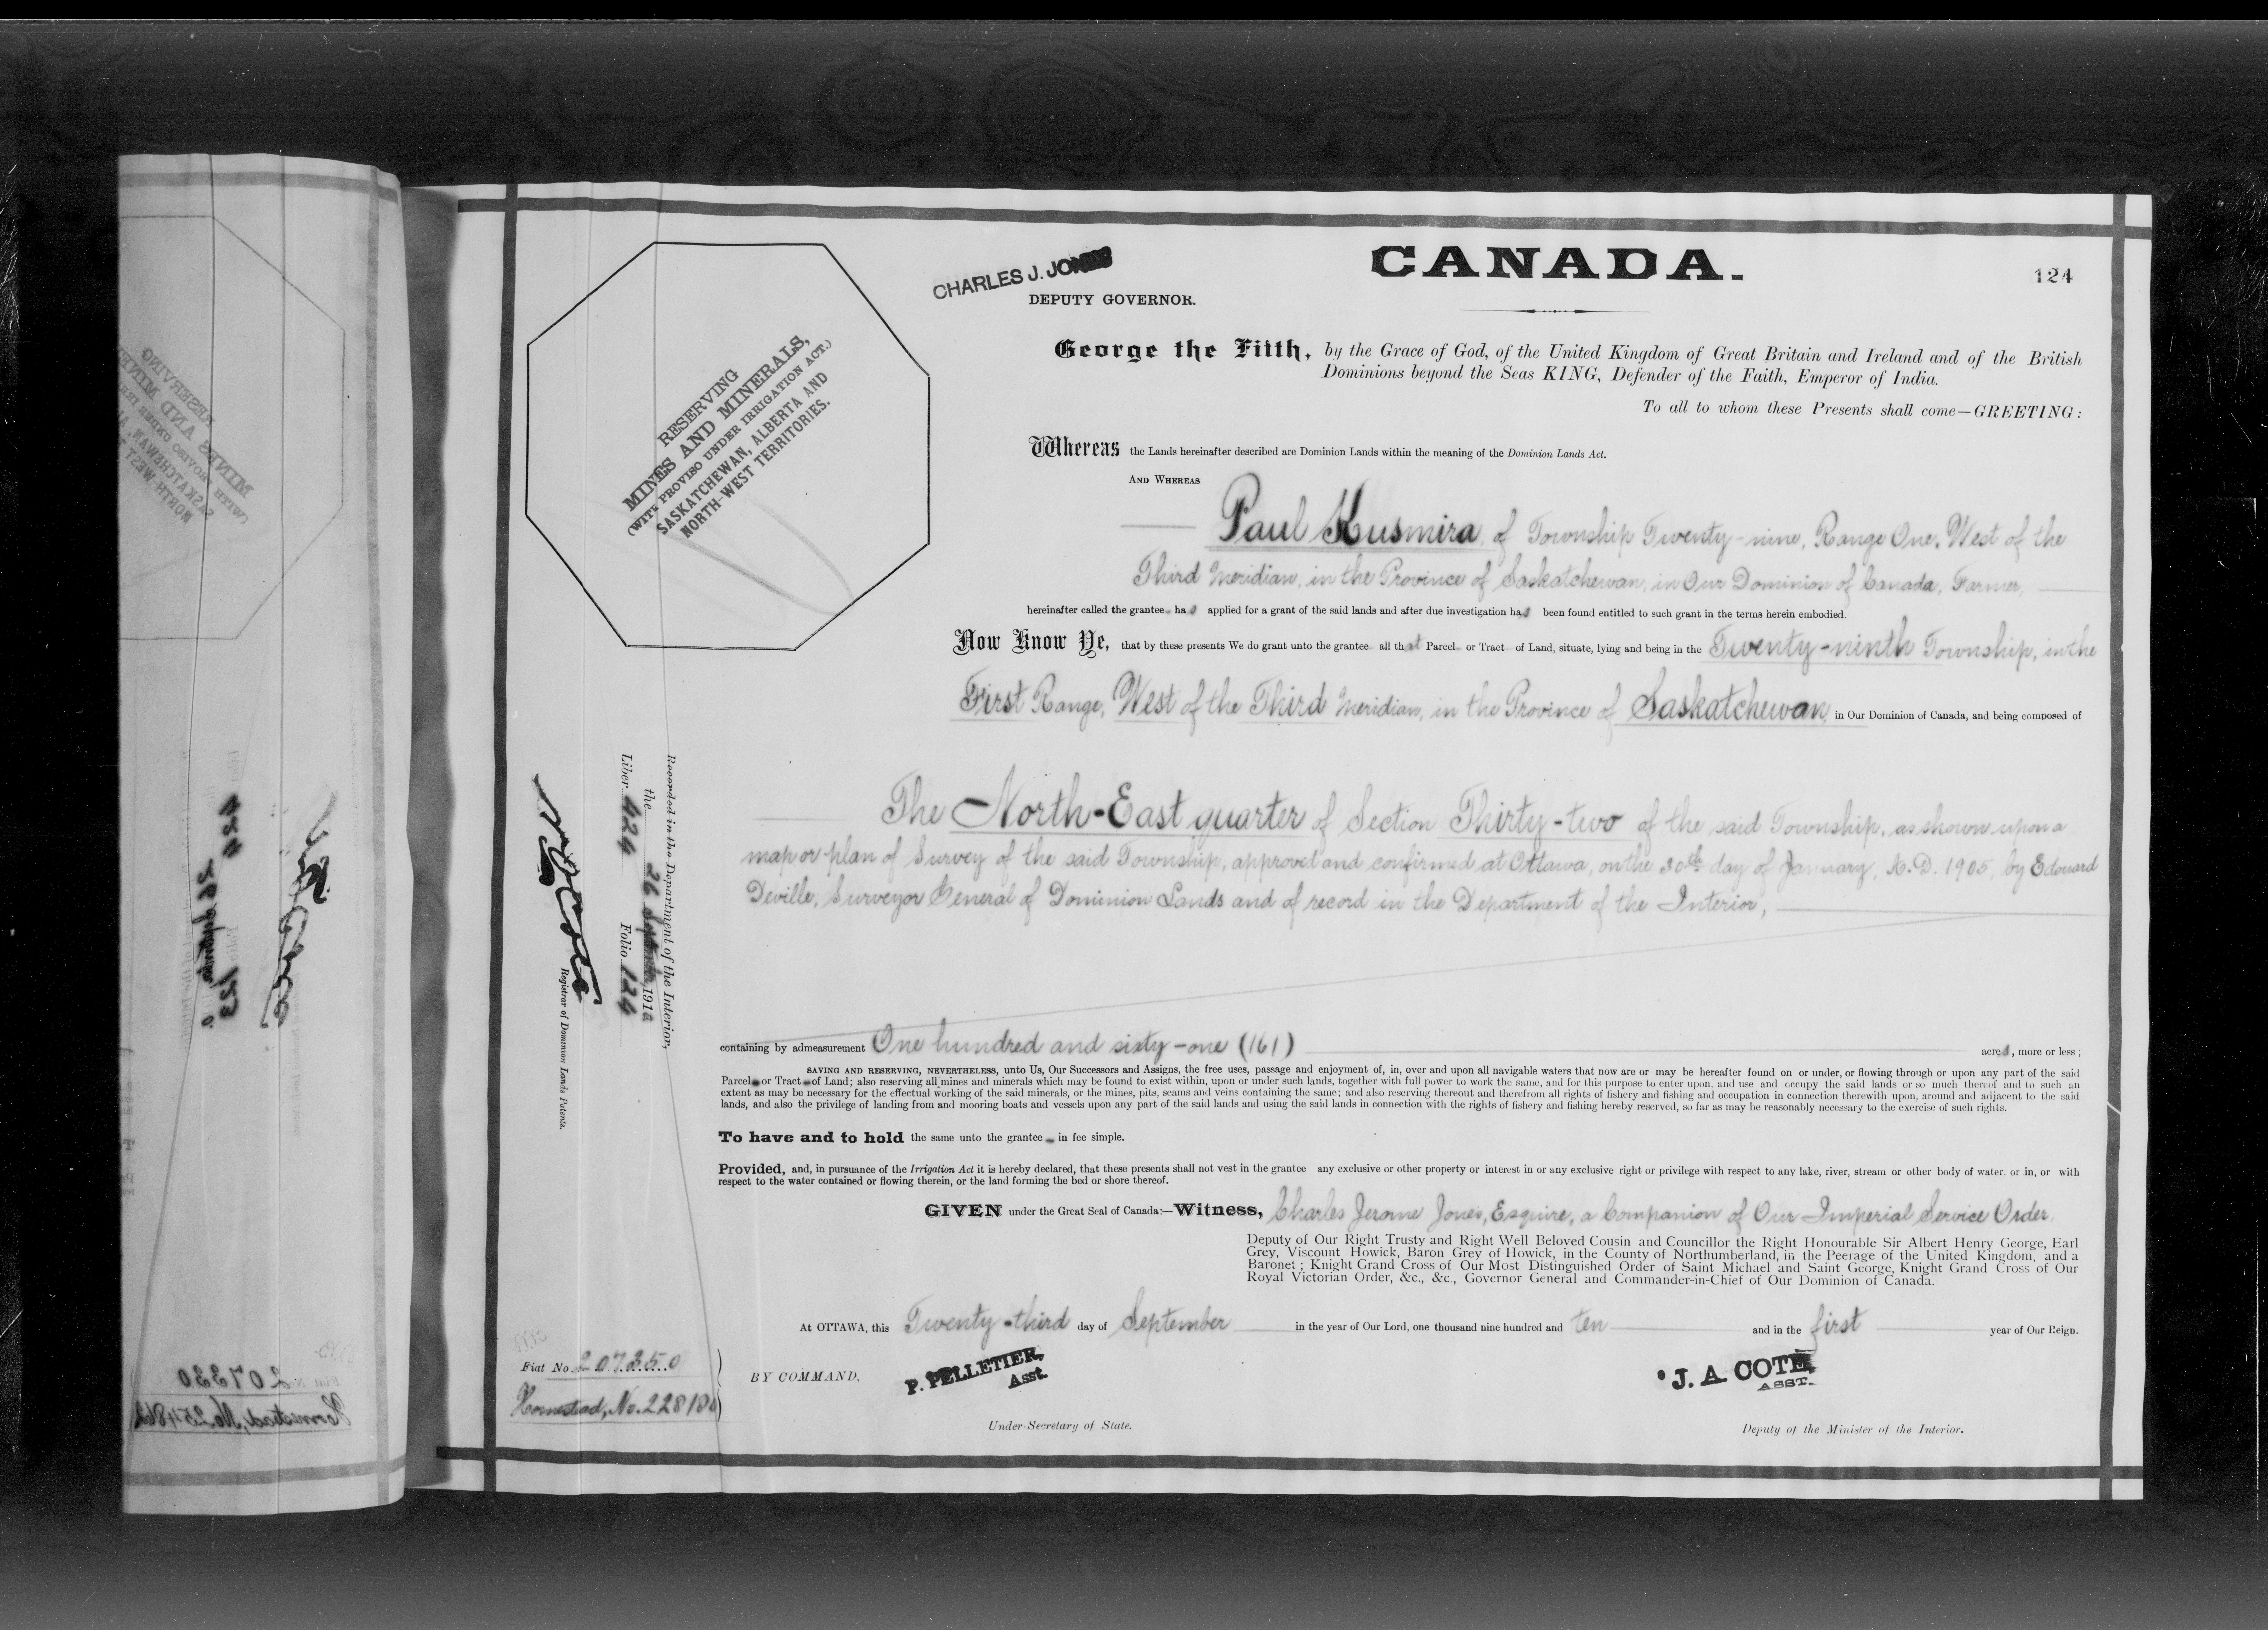 CHARLES J. JONES
DEPUTY GOVERNOR.
CANADA.
124
George the Fifth, by the Grace of God, of the United Kingdom of Great Britain and Ireland and of the British
Dominions beyond the Seas KING, Defender of the Faith, Emperor of India.
To all to whom these Presents shall come—GREETING:
RESERVING
MINES AND MINERALS,
(WITH PROVISO UNDER IRRIGATION ACT.)
SASKATCHEWAN, ALBERTA AND
NORTH-WEST TERRITORIES.
Whereas the Lands hereinafter described are Dominion Lands within the meaning of the Dominion Lands Act.
AND WHEREAS
Paul Kusmira, of Township Twenty-nine, Range One, West of the
Third Meridian, in the Province of Saskatchewan, in Our Dominion of Canada, Farmer,
hereinafter called the grantee has applied for a grant of the said lands and after due investigation has been found entitled to such grant in the terms herein embodied.
Now Know Ye, that by these presents We do grant unto the grantee all that Parcel or Tract of Land, situate, lying and being in the Twenty-ninth Township, in the
First Range, West of the Third Meridian, in the Province of Saskatchewan, in Our Dominion of Canada, and being composed of
The North-East quarter of Section Thirty-two of the said Township, as shown upon a
map or plan of Survey of the said Township, approved and confirmed at Ottawa, on the 30th day of January, A.D. 1905, by Edouard
Deville, Surveyor General of Dominion Lands and of record in the Department of the Interior,
Recorded in the Department of the Interior,
the 26 September, 1910
Liber 424 Folio 124
Registrar of Dominion Lands Patents.
containing by admeasurement One hundred and sixty-one (161) acres, more or less;
SAVING AND RESERVING, NEVERTHELESS, unto Us, Our Successors and Assigns, the free uses, passage and enjoyment of, in, over and upon all navigable waters that now are or may be hereafter found on or under, or flowing through or upon any part of the said
Parcel or Tract of Land; also reserving all mines and minerals which may be found to exist within, upon or under such lands, together with full power to work the same, and for this purpose to enter upon, and use and occupy the said lands or so much thereof and to such an
extent as may be necessary for the effectual working of the said minerals, or the mines, pits, seams and veins containing the same; and also reserving thereout and therefrom all rights of fishery and fishing and occupation in connection therewith upon, around and adjacent to the said
lands, and also the privilege of landing from and mooring boats and vessels upon any part of the said lands and using the said lands in connection with the rights of fishery and fishing hereby reserved, so far as may be reasonably necessary to the exercise of such rights.
To have and to hold the same unto the grantee in fee simple.
Provided, and, in pursuance of the Irrigation Act it is hereby declared, that these presents shall not vest in the grantee any exclusive or other property or interest in or any exclusive right or privilege with respect to any lake, river, stream or other body of water, or in, or with
respect to the water contained or flowing therein, or the land forming the bed or shore thereof.
GIVEN under the Great Seal of Canada:—Witness, Charles Jerome Jones, Esquire, a Companion of Our Imperial Service Order,
Deputy of Our Right Trusty and Right Well Beloved Cousin and Councillor the Right Honourable Sir Albert Henry George, Earl
Grey, Viscount Howick, Baron Grey of Howick, in the County of Northumberland, in the Peerage of the United Kingdom, and a
Baronet; Knight Grand Cross of Our Most Distinguished Order of Saint Michael and Saint George, Knight Grand Cross of Our
Royal Victorian Order, &c., &c., Governor General and Commander-in-Chief of Our Dominion of Canada.
At OTTAWA, this Twenty-third day of September in the year of Our Lord, one thousand nine hundred and ten and in the first year of Our Reign.
Fiat No. 207350
Homestead, No. 228180
BY COMMAND,
P. PELLETIER,
Asst.
Under-Secretary of State.
J. A. COTE,
ASST.
Deputy of the Minister of the Interior.